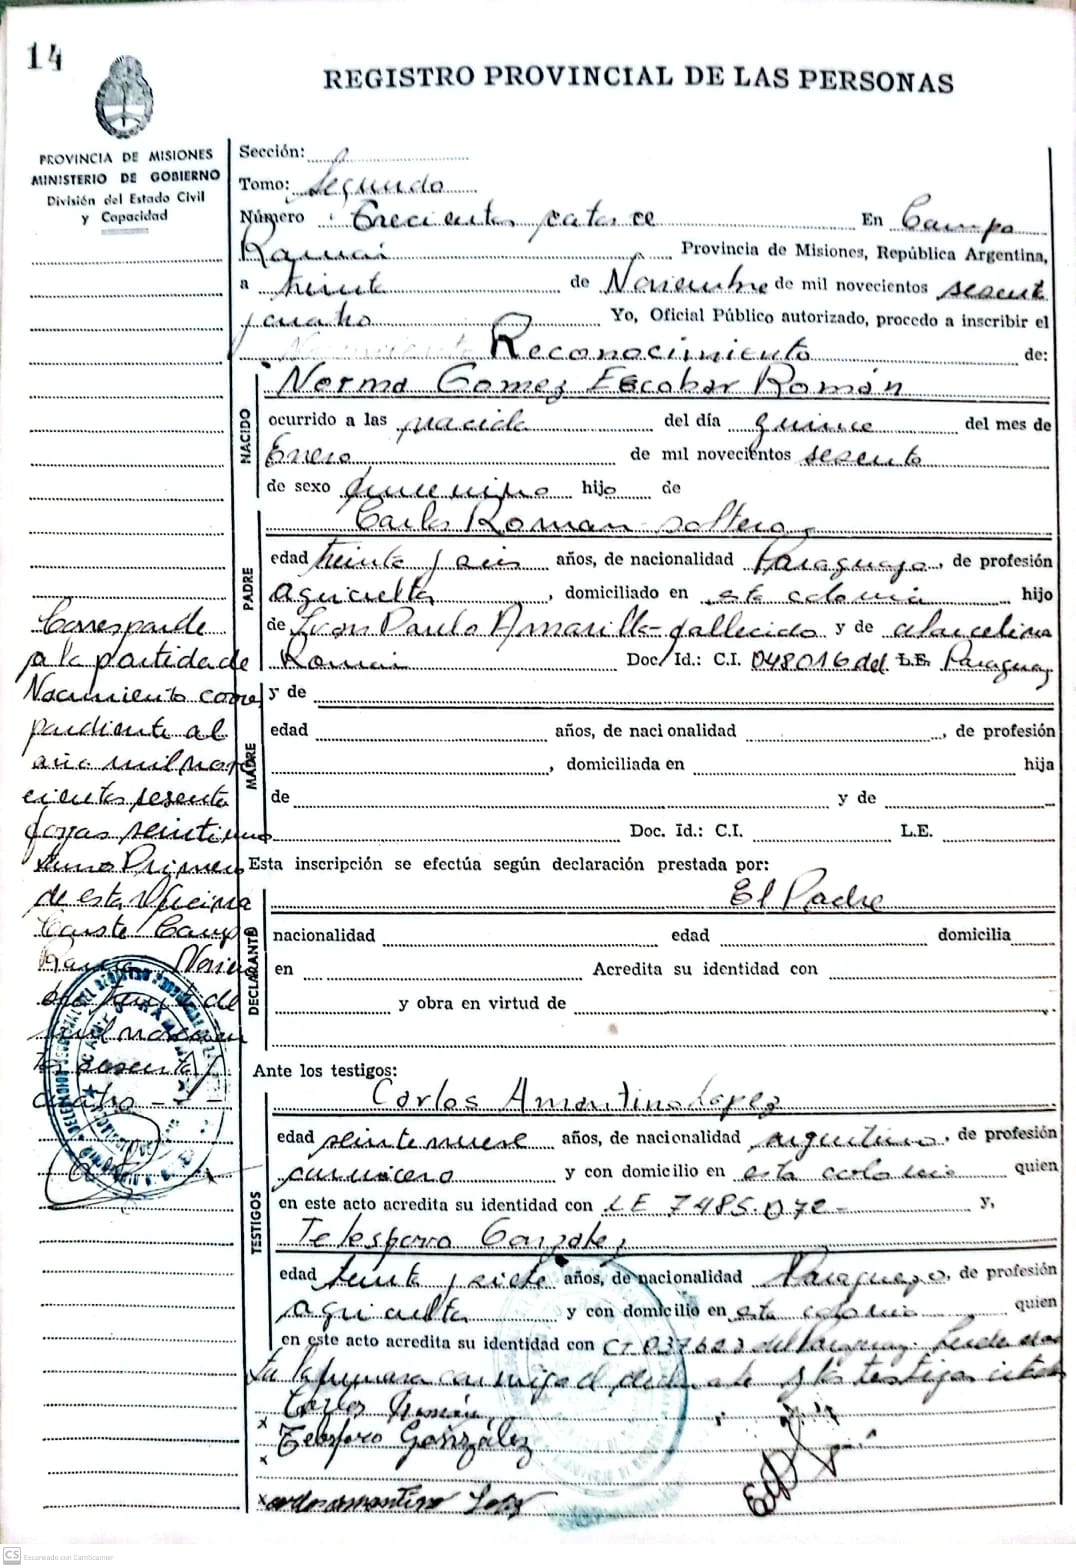 14
REGISTRO PROVINCIAL DE LAS PERSONAS
PROVINCIA DE MISIONES
MINISTERIO DE GOBIERNO
División del Estado Civil
y Capacidad
Sección:
Tomo: Segundo
Número Trecientos catorce En Campo
Ramón Provincia de Misiones, República Argentina,
a treinta de Noviembre de mil novecientos sesenta
y cuatro Yo, Oficial Público autorizado, procedo a inscribir el
Reconocimiento de:
NACIDO
Norma Gomez Escobar Román
ocurrido a las nacida del día quince del mes de
Enero de mil novecientos sesenta
de sexo femenino hijo de
PADRE
Carlos Roman soltero
edad treinta y seis años, de nacionalidad Paraguayo, de profesión
agricultor, domiciliado en esta colonia hijo
de Juan Paulo Amarilla - fallecido y de Marcelina
Roman Doc. Id.: C.I. 048016 del L.E. Paraguay
MADRE
y de
edad años, de nacionalidad , de profesión
, domiciliada en hija
de y de
Doc. Id.: C.I. L.E.
Esta inscripción se efectúa según declaración prestada por:
DECLARANTE
El Padre
nacionalidad edad domicilia
en Acredita su identidad con
y obra en virtud de
Ante los testigos:
TESTIGOS
Carlos Amantino Lopez
edad veintenueve años, de nacionalidad argentino, de profesión
carnicero y con domicilio en esta colonia quien
en este acto acredita su identidad con LE 7485.072- y,
Telesforo Gonzalez
edad treinta y siete años, de nacionalidad Paraguayo, de profesión
agricultor y con domicilio en esta colonia quien
en este acto acredita su identidad con CI 037623 del Paraguay. Leida el acta
la firman conmigo el declarante y los testigos citados
Carlos Román
x Telesforo González
x
x carlos amantino Lopez
Corresponde
a la partida de
Nacimiento corres
pondiente al
año mil nov
ecientos sesenta
fojas veintiuno
tomo Primero
de esta Oficina
Conste Camp
Ramon Noviem
bre treinta de
mil novecien
tos sesenta y
cuatro - - -
CS Escaneado con CamScanner